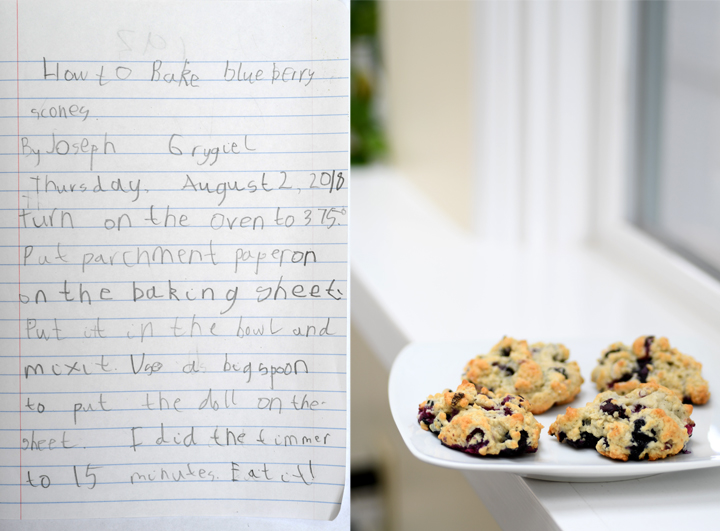 How to Bake blueberry
scones.
By Joseph Grygiel
Thursday, August 2, 2018
turn on the oven to 375°
Put parchment paper on
on the baking sheet.
Put it in the bowl and
mix it. Use a big spoon
to put the doll on the
sheet. I did the timmer
to 15 minutes. Eat it!